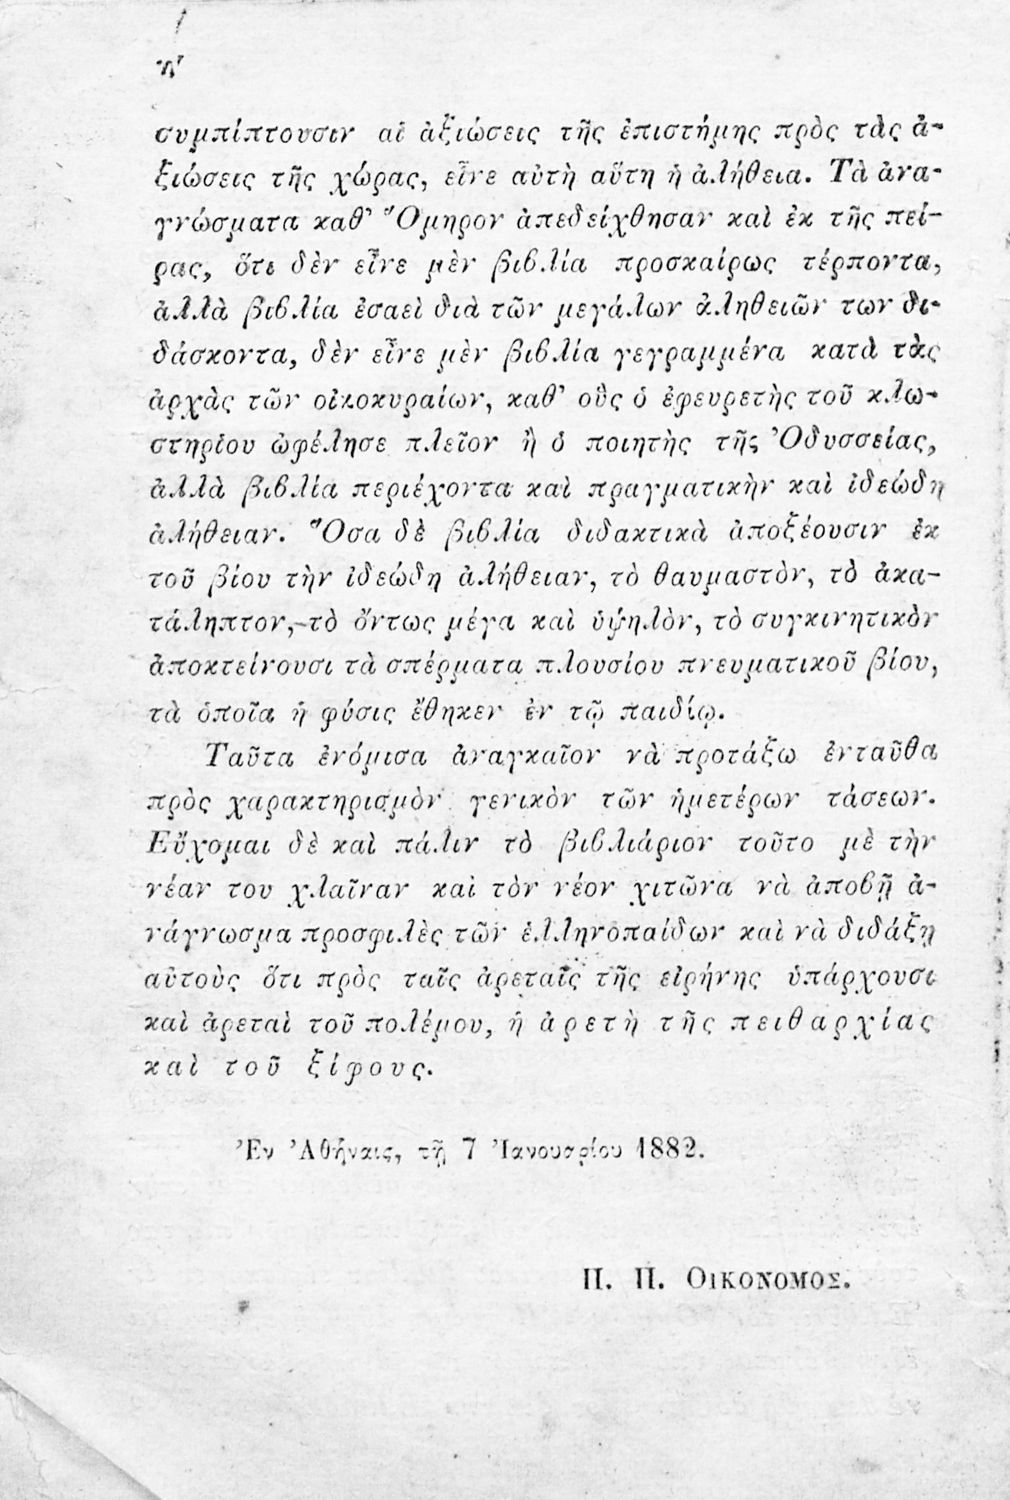 η'
συμπίπτουσιν αἱ ἀξιώσεις τῆς ἐπιστήμης πρὸς τὰς ἀ-
ξιώσεις τῆς χώρας, εἶνε αὐτὴ αὕτη ἡ ἀλήθεια. Τὰ ἀνα-
γνώσματα καθ' Ὅμηρον ἀπεδείχθησαν καὶ ἐκ τῆς πεί-
ρας, ὅτι δὲν εἶνε μὲν βιβλία προσκαίρως τέρποντα,
ἀλλὰ βιβλία ἐσαεὶ διὰ τῶν μεγάλων ἀληθειῶν των δι-
δάσκοντα, δὲν εἶνε μὲν βιβλία γεγραμμένα κατὰ τὰς
ἀρχὰς τῶν οἰκοκυραίων, καθ' οὓς ὁ ἐφευρετὴς τοῦ κλω-
στηρίου ὠφέλησε πλεῖον ἢ ὁ ποιητὴς τῆς Ὀδυσσείας,
ἀλλὰ βιβλία περιέχοντα καὶ πραγματικὴν καὶ ἰδεώδη
ἀλήθειαν. Ὅσα δὲ βιβλία διδακτικὰ ἀποξέουσιν ἐκ
τοῦ βίου τὴν ἰδεώδη ἀλήθειαν, τὸ θαυμαστὸν, τὸ ἀκα-
τάληπτον,-τὸ ὄντως μέγα καὶ ὑψηλὸν, τὸ συγκινητικὸν
ἀποκτείνουσι τὰ σπέρματα πλουσίου πνευματικοῦ βίου,
τὰ ὁποῖα ἡ φύσις ἔθηκεν ἐν τῷ παιδίῳ.
Ταῦτα ἐνόμισα ἀναγκαῖον νὰ προτάξω ἐνταῦθα
πρὸς χαρακτηρισμὸν γενικὸν τῶν ἡμετέρων τάσεων.
Εὔχομαι δὲ καὶ πάλιν τὸ βιβλιάριον τοῦτο μὲ τὴν
νέαν του χλαῖναν καὶ τὸν νέον χιτῶνα νὰ ἀποβῇ ἀ-
νάγνωσμα προσφιλὲς τῶν ἑλληνοπαίδων καὶ νὰ διδάξῃ
αὐτοὺς ὅτι πρὸς ταῖς ἀρεταῖς τῆς εἰρήνης ὑπάρχουσι
καὶ ἀρεταὶ τοῦ πολέμου, ἡ ἀρετὴ τῆς πειθαρχίας
καὶ τοῦ ξίφους.
Ἐν Ἀθήναις, τῇ 7 Ἰανουαρίου 1882.
Π. Π. Οἰκονομος.